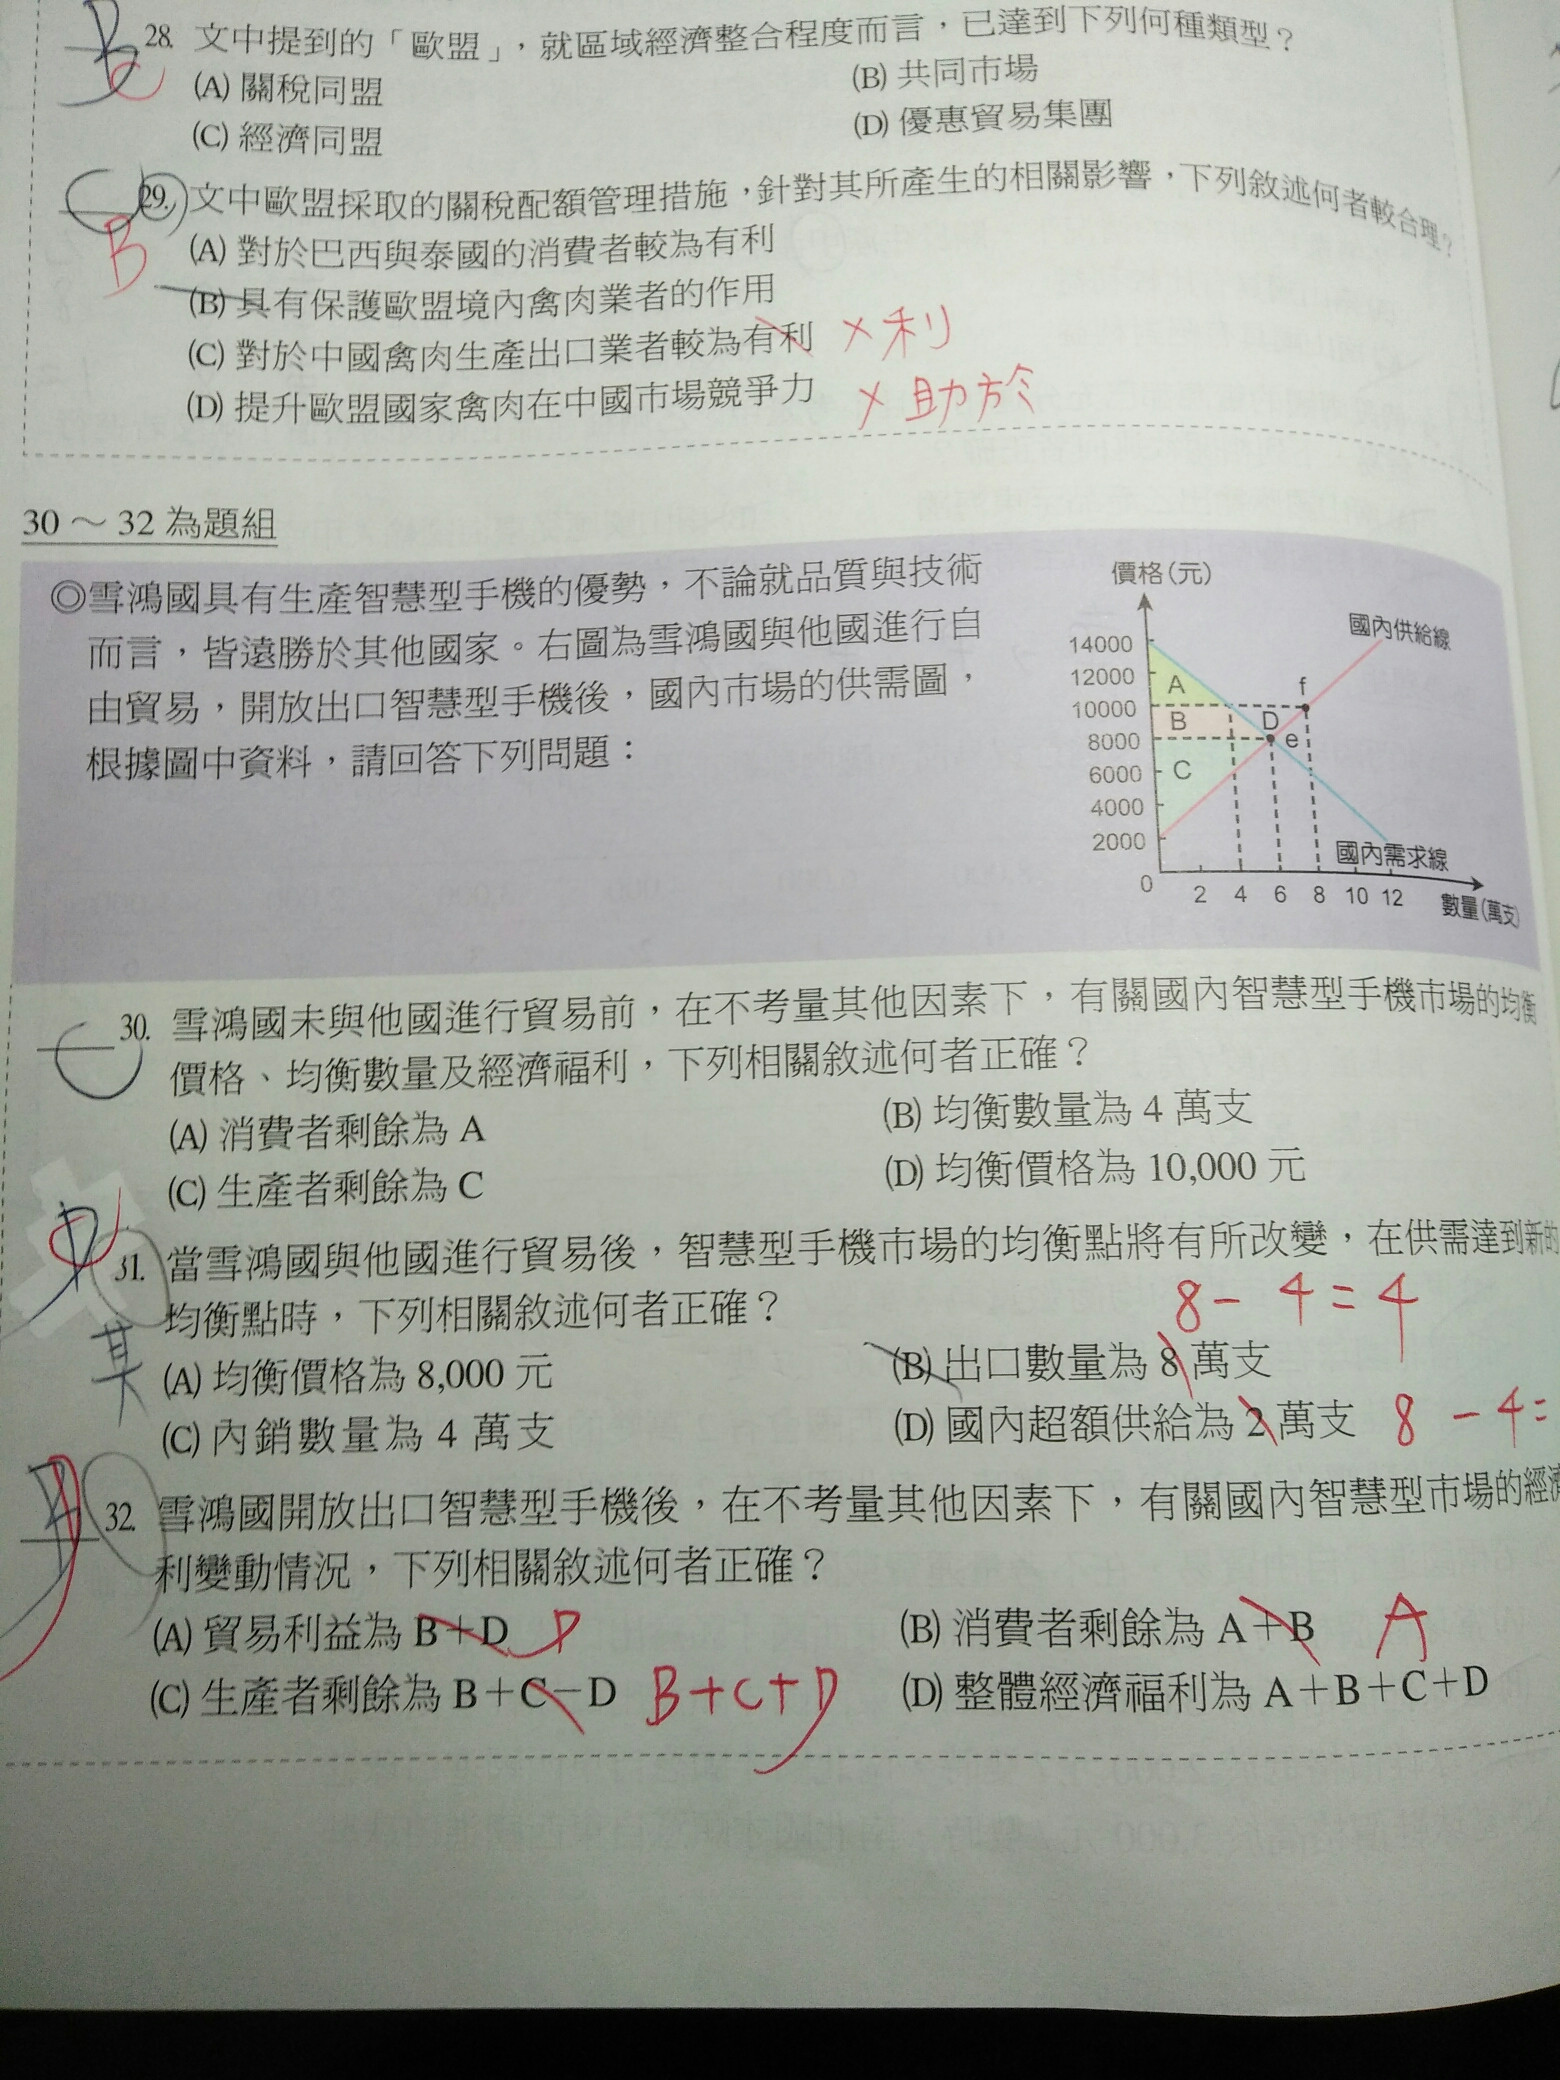 B
C
28. 文中提到的「歐盟」，就區域經濟整合程度而言，已達到下列何種類型？
(A) 關稅同盟
(B) 共同市場
(C) 經濟同盟
(D) 優惠貿易集團
C
B
29. 文中歐盟採取的關稅配額管理措施，針對其所產生的相關影響，下列敘述何者較合理？
(A) 對於巴西與泰國的消費者較為有利
(B) 具有保護歐盟境內禽肉業者的作用
(C) 對於中國禽肉生產出口業者較為有利 ×利
(D) 提升歐盟國家禽肉在中國市場競爭力 ×助於
30～32為題組
◎雪鴻國具有生產智慧型手機的優勢，不論就品質與技術
而言，皆遠勝於其他國家。右圖為雪鴻國與他國進行自
由貿易，開放出口智慧型手機後，國內市場的供需圖，
根據圖中資料，請回答下列問題：
價格(元)
國內供給線
14000
12000
10000
8000
6000
4000
2000
0
A
B
C
D
e
f
國內需求線
2 4 6 8 10 12
數量(萬支)
C
30. 雪鴻國未與他國進行貿易前，在不考量其他因素下，有關國內智慧型手機市場的均衡
價格、均衡數量及經濟福利，下列相關敘述何者正確？
(A) 消費者剩餘為 A
(B) 均衡數量為 4 萬支
(C) 生產者剩餘為 C
(D) 均衡價格為 10,000 元
31. 當雪鴻國與他國進行貿易後，智慧型手機市場的均衡點將有所改變，在供需達到新的
均衡點時，下列相關敘述何者正確？
8-4=4
(A) 均衡價格為 8,000 元
(B) 出口數量為 8 萬支
(C) 內銷數量為 4 萬支
(D) 國內超額供給為 2 萬支 8-4=
32. 雪鴻國開放出口智慧型手機後，在不考量其他因素下，有關國內智慧型市場的經濟
利變動情況，下列相關敘述何者正確？
(A) 貿易利益為 B+D D
(B) 消費者剩餘為 A+B A
(C) 生產者剩餘為 B+C-D B+C+D
(D) 整體經濟福利為 A+B+C+D